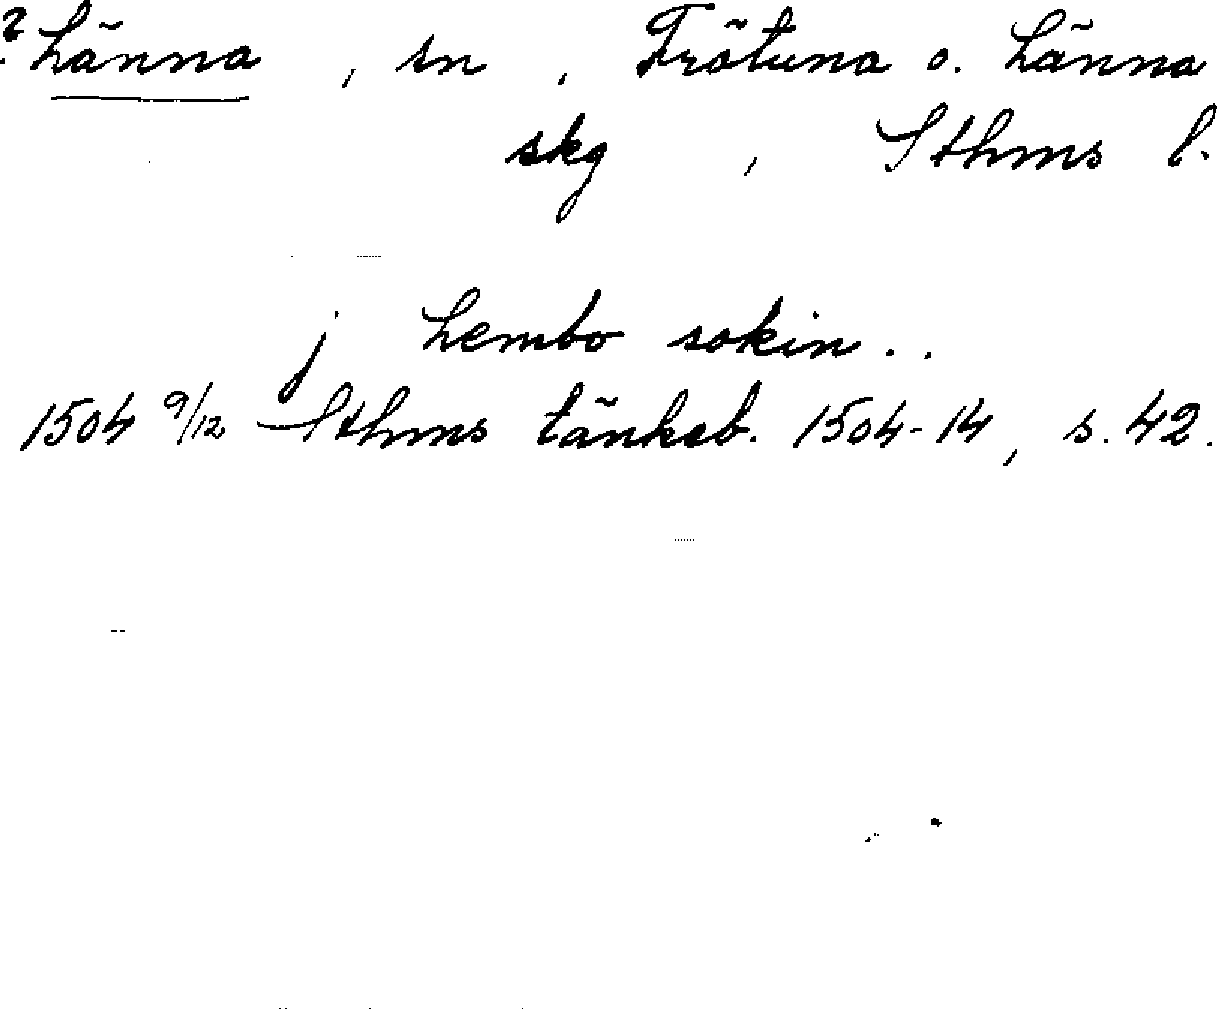 ? Länna, sn, Frötuna o. Länna
skg, Sthms l.
j Lembo sokin..
1504 9/12 Sthms tänkeb. 1504-14, s. 42.